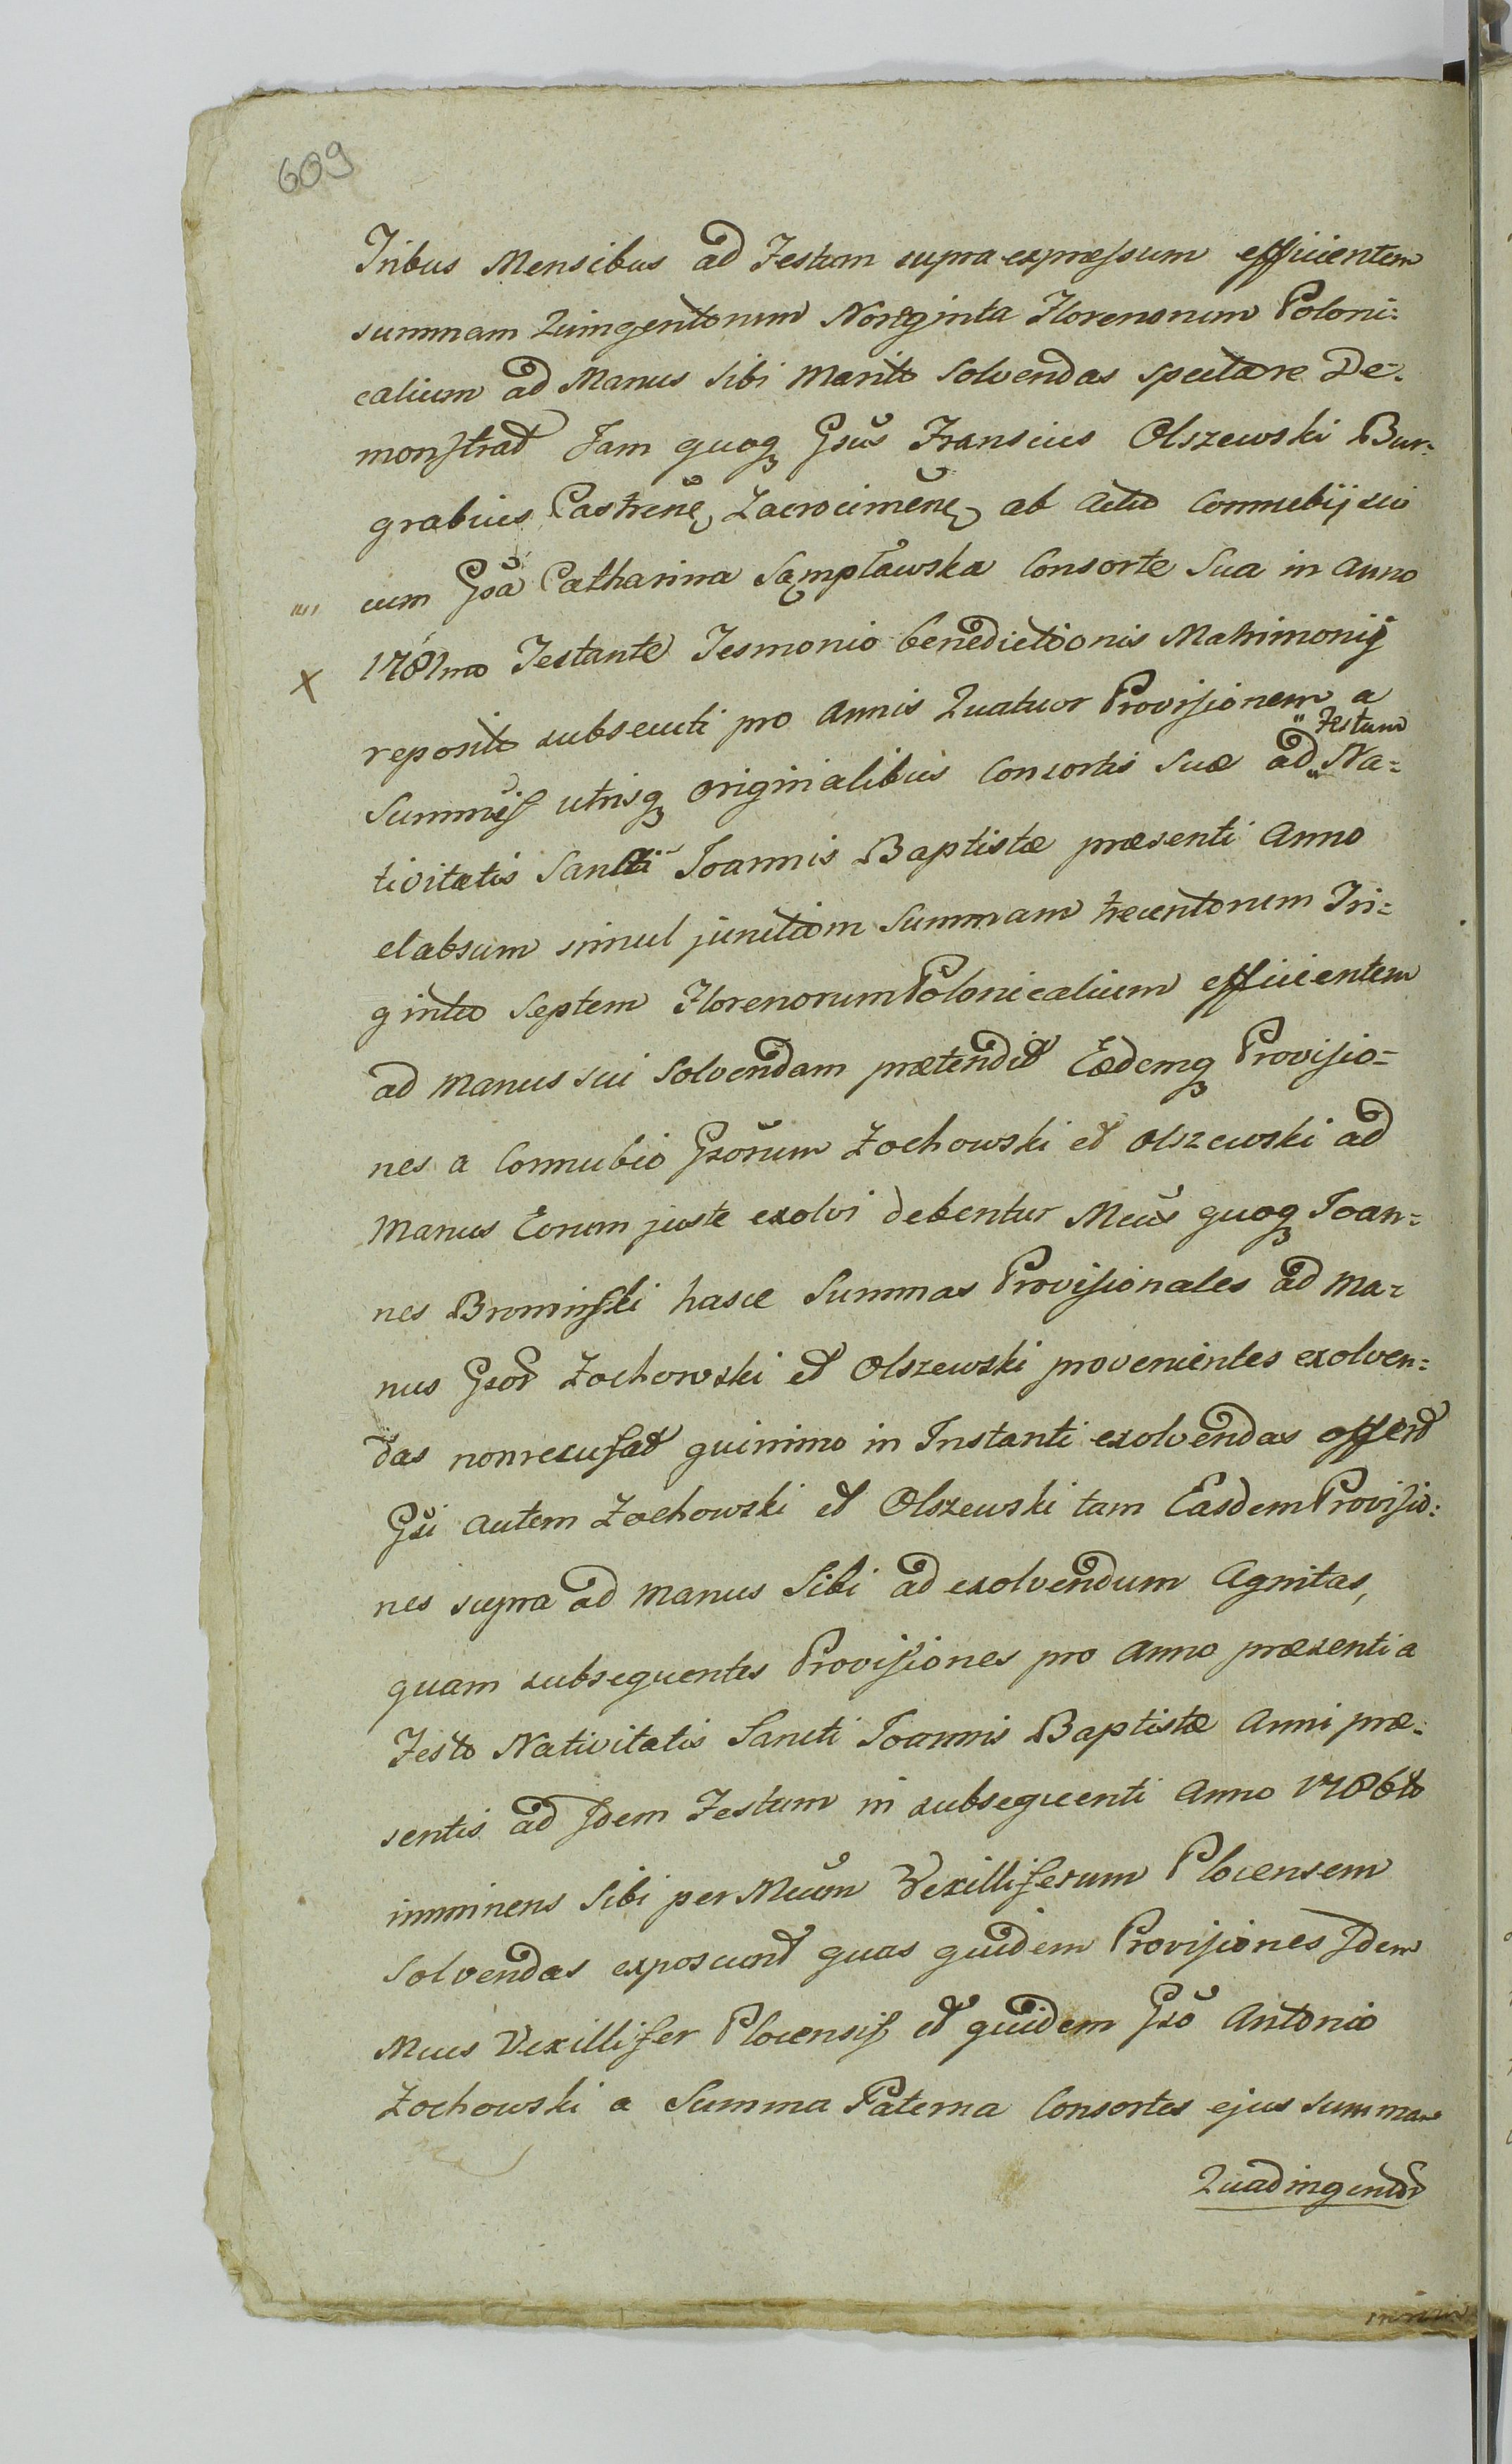 609
Tribus Mensibus ad Festum supra expressum efficientem
summam Quingentorum Noneginta Florenorum Poloni=
calium ad Manus Sibi Marito Solvendas spectare De=
monstrat Jam quoq Gsus Franscius Olszewski Bur=
grabius Castrens Zacrocimens ab actu Connubij sui
cum Gsa Catharina Sęmpławska Consorte Sua in Anno
1781mo Testante Tesmonio benedictionis Matrimonij
reposito subsecuti pro Annis Quatuor Provisionem a
Festum
Summis utrisq originalibus Consortis Suæ ad Na=
tivitatis Sancti Joannis Baptistæ præsenti Anno
elabsum simul junctam Summam trecentorum Tri=
ginta Septem Florenorum Polonicalium efficientem
ad manus sui Solvendam prætendit Eædemq Provisio=
nes a Connubio Gsorum Zochowski et Olszewski ad
Manus Eorum juste exolvi debentur Mcus quoq Joan=
nes Brominski hasce Summas Provisionales ad Ma=
nus Gsor Zochowski et Olszewski provenientes exolven=
das non recusat quinimo in Instanti exolvendas offert
Gsi autem Zochowski et Olszewski tam Easdem Provisio=
nes supra ad manus Sibi ad exolvendum Agnitas,
quam subsequentes Provisiones pro Anno præsenti a
Festo Nativitatis Sancti Joannis Baptistæ Anni præ=
sentis ad Idem Festum in subsequenti Anno 1786to
imminens Sibi per Mcum Vexilliferum Plocensem
Solvendas exposcunt quas quidem Provisiones Idem
Mcus Vexillifer Plocensis et quidem Gso Antonio
Zochowski a Summa Paterna Consortes ejus summam
Quadringentor